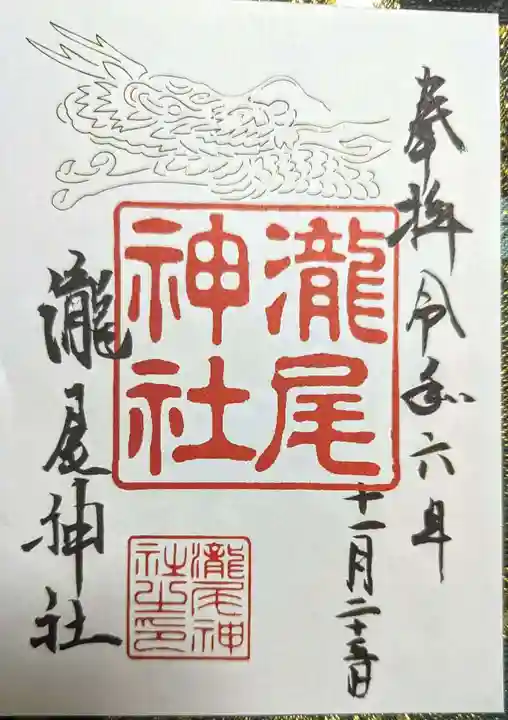 奉拝 令和六年
十一月二十二日
瀧尾神社
瀧尾神社
瀧尾神社之印